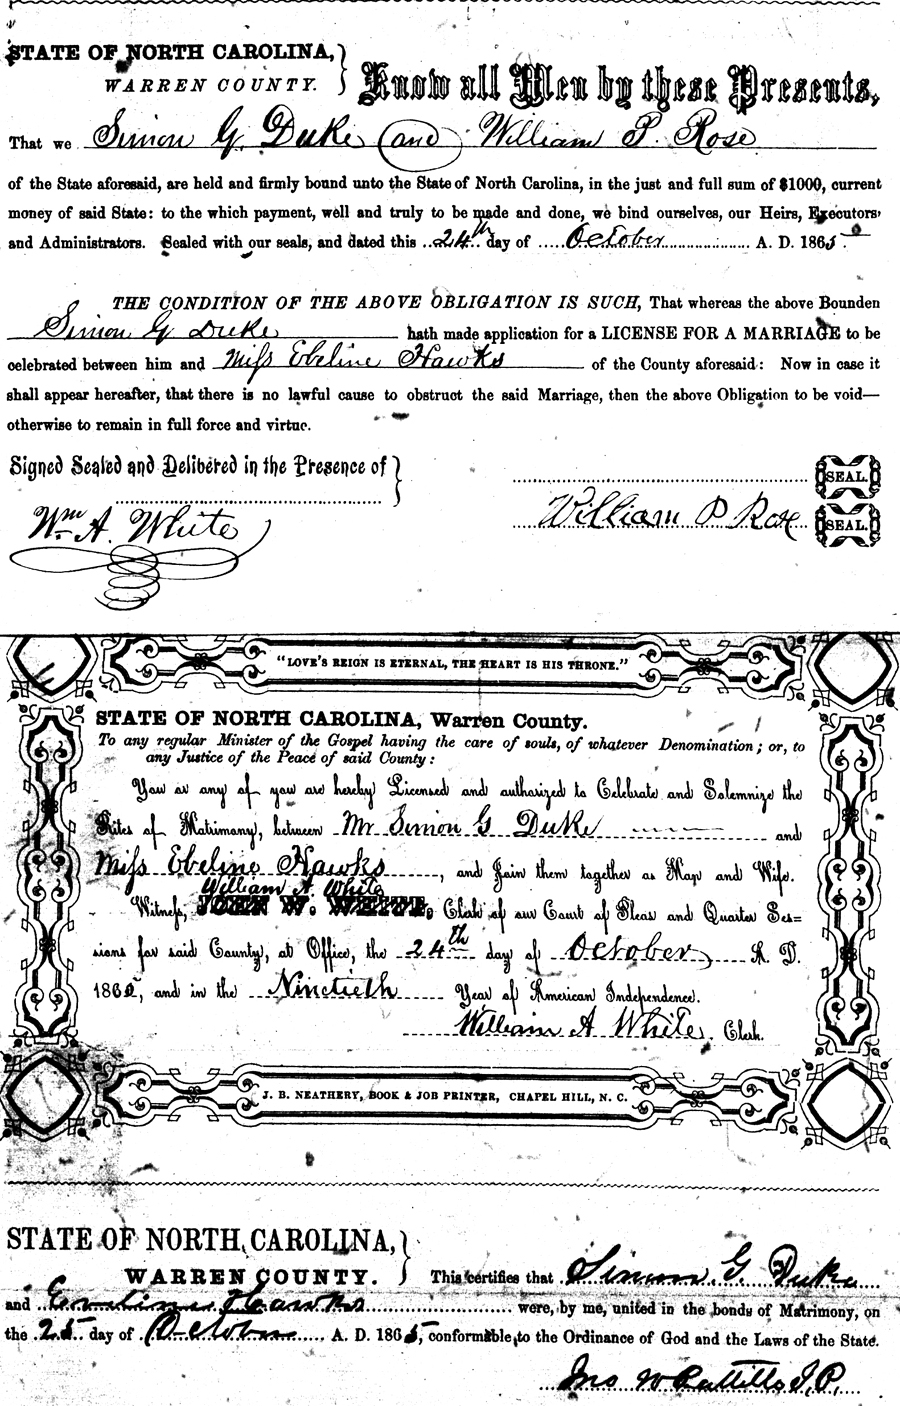 STATE OF NORTH CAROLINA,
WARREN COUNTY.
Know all Men by these Presents,
That we Simon G. Duke and William P. Rose
of the State aforesaid, are held and firmly bound unto the State of North Carolina, in the just and full sum of $1000, current
money of said State: to the which payment, well and truly to be made and done, we bind ourselves, our Heirs, Executors,
and Administrators. Sealed with our seals, and dated this 24th day of October A. D. 1865.
THE CONDITION OF THE ABOVE OBLIGATION IS SUCH, That whereas the above Bounden
Simon G Duke hath made application for a LICENSE FOR A MARRIAGE to be
celebrated between him and Miss Ebeline Hawks of the County aforesaid: Now in case it
shall appear hereafter, that there is no lawful cause to obstruct the said Marriage, then the above Obligation to be void—
otherwise to remain in full force and virtue.
Signed Sealed and Delibered in the Presence of
SEAL.
Wm A. White
William P Rose SEAL.
"LOVE'S REIGN IS ETERNAL, THE HEART IS HIS THRONE."
STATE OF NORTH CAROLINA, Warren County.
To any regular Minister of the Gospel having the care of souls, of whatever Denomination; or, to
any Justice of the Peace of said County:
You or any of you are hereby Licensed and authorized to Celebrate and Solemnize the
Rites of Matrimony, between Mr Simon G Duke and
Miss Ebeline Hawks, and Join them together as Man and Wife.
William A. White
Witness, JOHN W. WHITE, Clerk of our Court of Pleas and Quarter Ses=
sions for said County, at Office, the 24th day of October A. D.
1865, and in the Ninetieth Year of American Independence.
William A White, Clerk.
J. B. NEATHERY, BOOK & JOB PRINTER, CHAPEL HILL, N. C.
STATE OF NORTH CAROLINA,
WARREN COUNTY.
This certifies that Simon G. Duke
and Emeline Hawks were, by me, united in the bonds of Matrimony, on
the 25 day of October A. D. 1865, conformable to the Ordinance of God and the Laws of the State.
Jno W J.P.